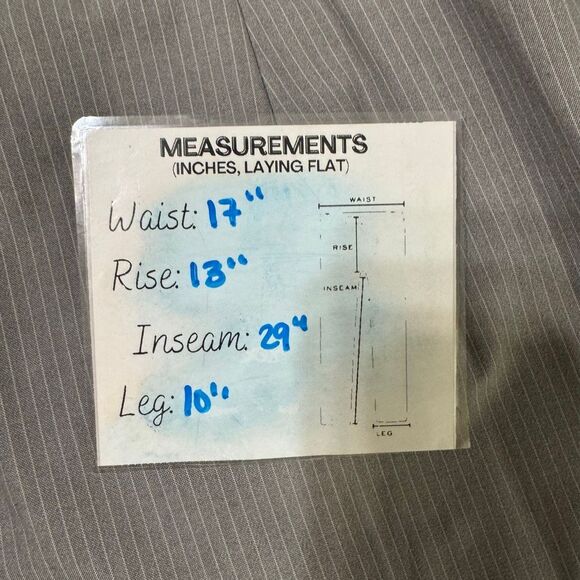 MEASUREMENTS
(INCHES, LAYING FLAT)
Waist: 17"
Rise: 13"
Inseam: 29"
Leg: 10"
WAIST
RISE
INSEAM
LEG